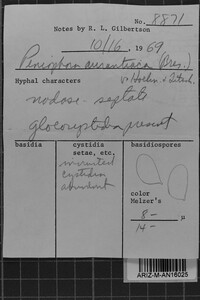 No. 8871
Notes by R. L. Gilbertson
10/16, 1969
Peniophora aurantiaca (Bres.)
Hyphal characters v. Hoehn. & Litsch.
nodose-septate
gloeocystidia present
basidia
cystidia
setae, etc.
incrusted
cystidia
abundant
basidiospores
color
Melzer's
8 -
14 - μ
ARIZ-M-AN16025